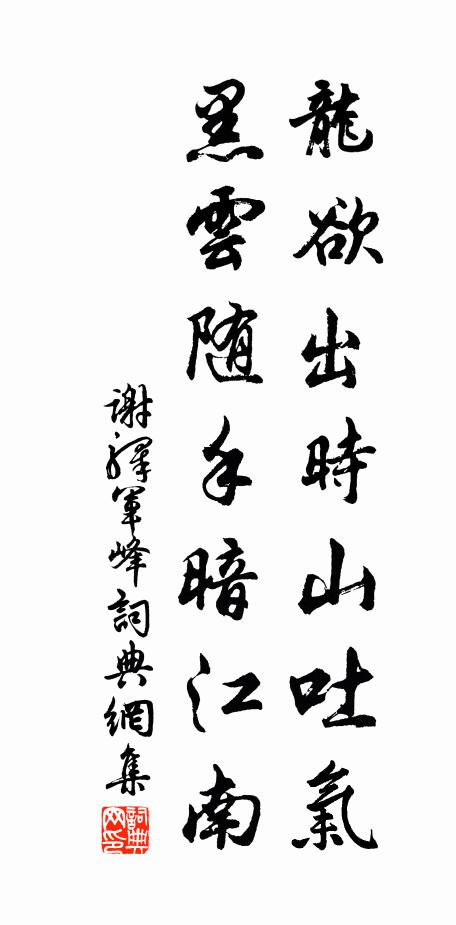 龍欲出時山吐氣
黑雲随手暗江南
謝釋軍峰詞典網集
詞典网印